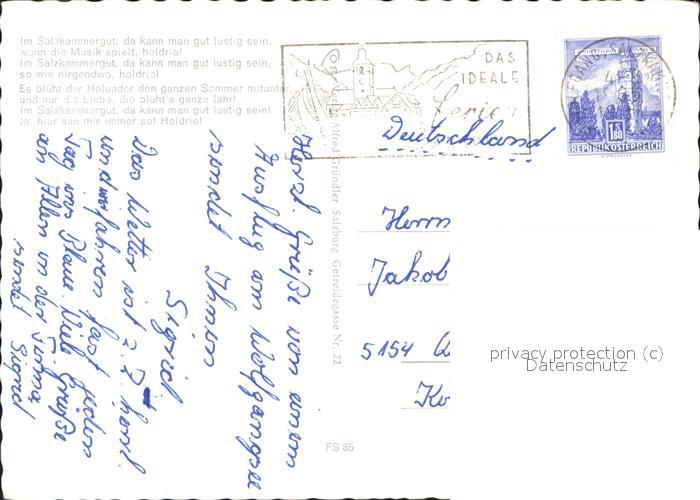 Im Salzkammergut, da kann man gut lustig sein,
wenn die Musik spielt, holdrio!
Im Salzkammergut, da kann man gut lustig sein,
so wie nirgendwo, holdrio!
Es blüht der Holunder den ganzen Sommer mitunter
und nur die Liebe, die blüht's ganze Jahr!
Im Salzkammergut, da kann man gut lustig sein!
Ja, hier san mir immer so! Holdrio!
DAS
IDEALE
Ferien
1.80
REPUBLIK ÖSTERREICH
Deutschland
Herrn
Jakob
5154
Herzl. Grüße von einem
Ausflug am Wolfgangsee
sendet Ihnen
Sigrid
Das Wetter ist z. Z. herrl.
und wir fahren fast jeden
Tag ins Blaue. Viele Grüße
an Allen in der Firma
sendet Sigrid
Alfred Gründler Salzburg Getreidegasse Nr. 22
FS 85
privacy protection (c)
Datenschutz